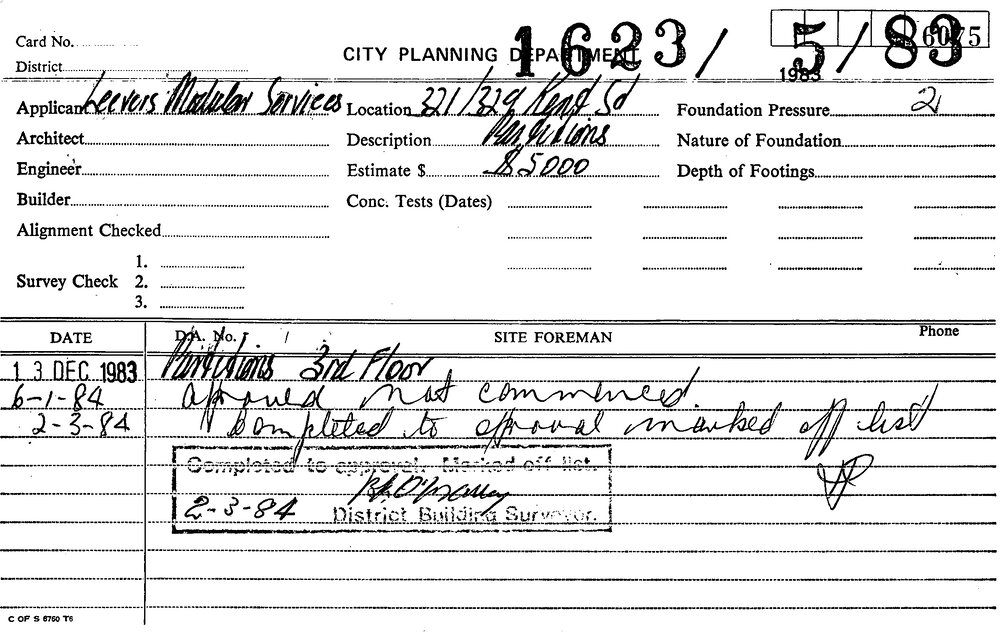 Card No.
CITY PLANNING DEPARTMENT
1623/5/83
6075
District
1983
Applicant Leevers Modular Services Location 321/329 Kent St Foundation Pressure 2
Architect Description Partitions Nature of Foundation
Engineer Estimate $ $5000 Depth of Footings
Builder Conc. Tests (Dates)
Alignment Checked
1.
Survey Check 2.
3.
DATE D.A. No. / SITE FOREMAN Phone
13 DEC 1983 Partitions 3rd Floor
6-1-84 approved not commenced
2-3-84 Completed to approval marked off list
Completed to approval. Marked off list.
2-3-84 District Building Surveyor.
C OF S 6760 T6